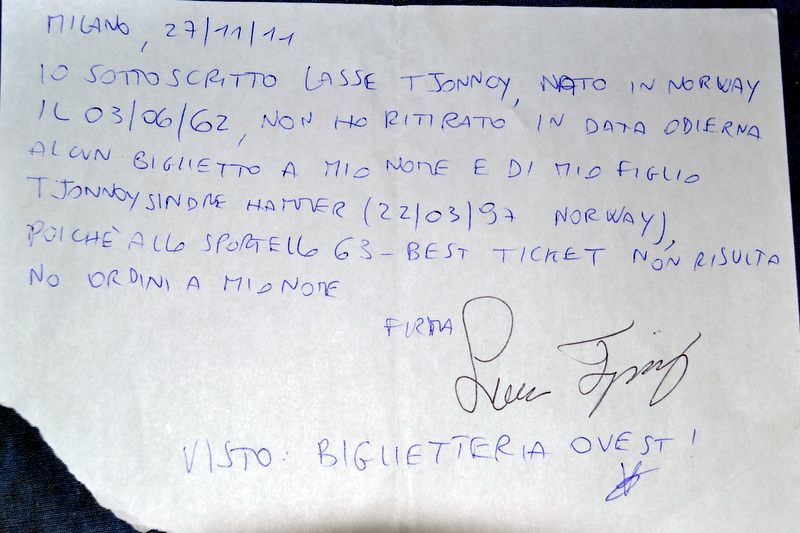 MILANO, 27/11/11
IO SOTTOSCRITTO LASSE TJONNOY, NATO IN NORWAY
IL 03/06/62, NON HO RITIRATO IN DATA ODIERNA
ALCUN BIGLIETTO A MIO NOME E DI MIO FIGLIO
TJONNOY SINDRE HAMMER (22/03/97 NORWAY),
POICHÈ ALLO SPORTELLO 63 - BEST TICKET NON RISULTA
NO ORDINI A MIO NOME
FIRMA
VISTO: BIGLIETTERIA OVEST!